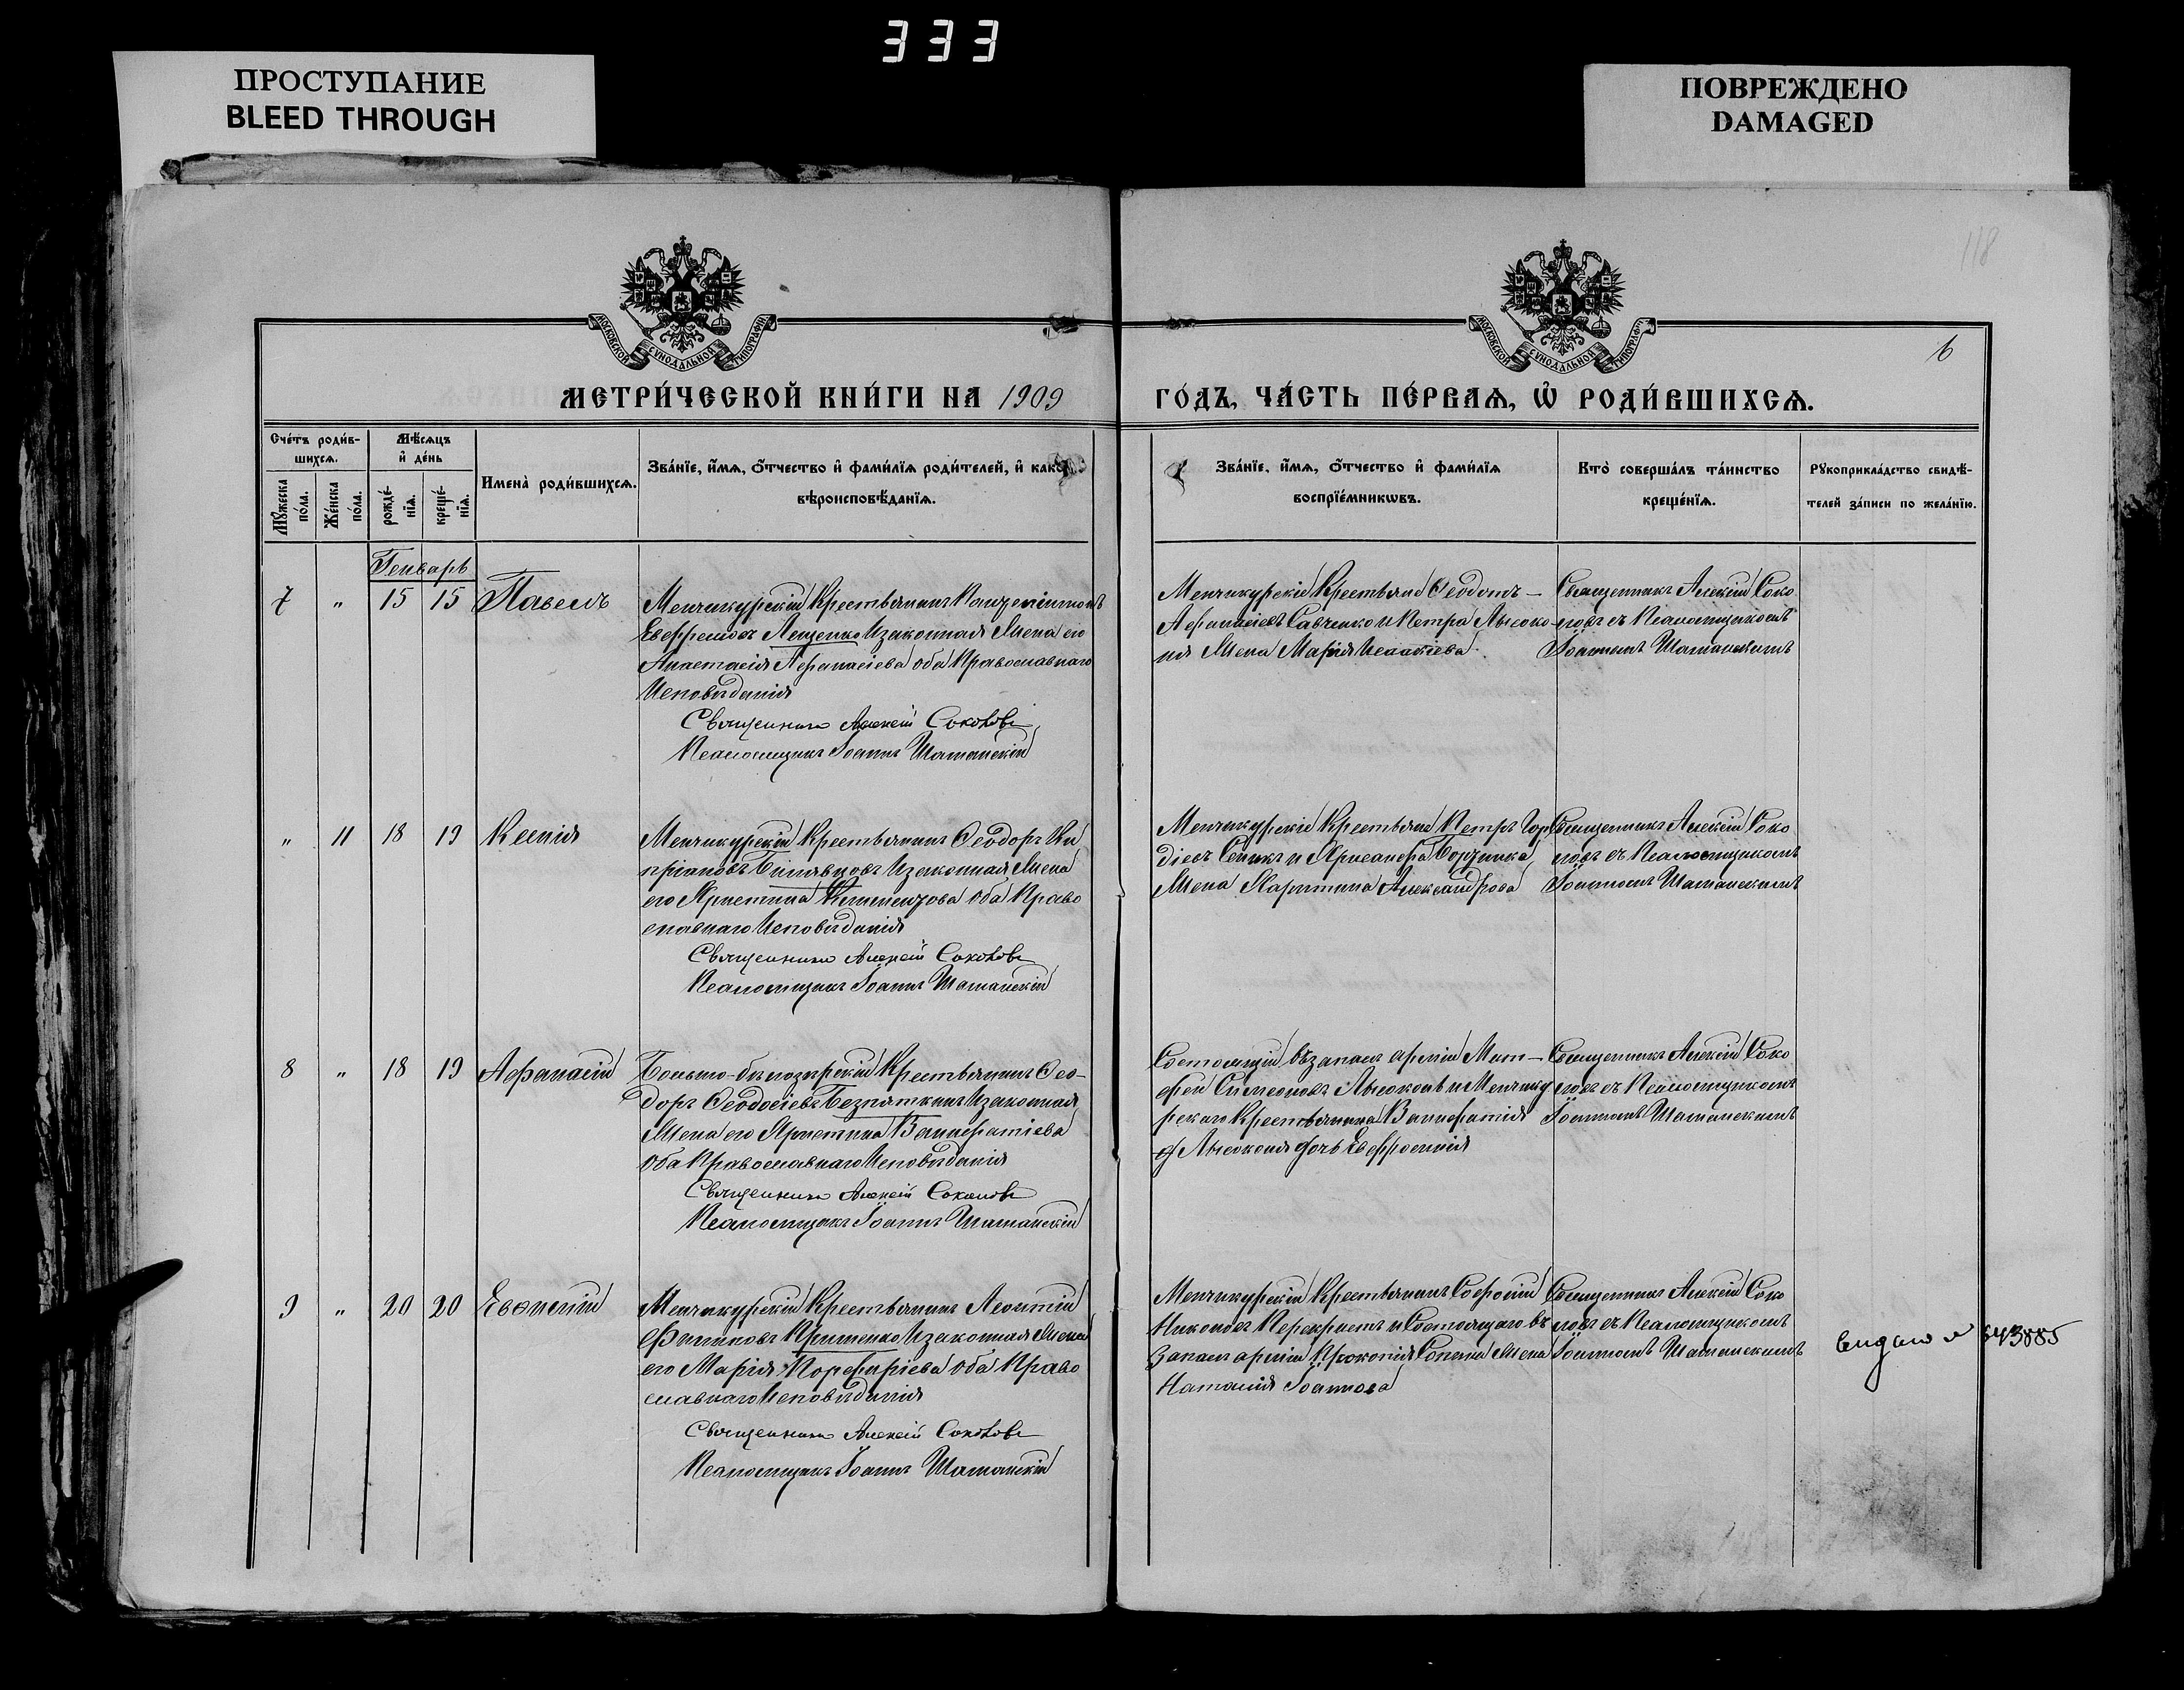 333
ПРОСТУПАНИЕ
BLEED THROUGH
ПОВРЕЖДЕНО
DAMAGED
118
МОСКОВСКОЙ СѴНОДАЛЬНОЙ ТИПОГРАФІИ
МОСКОВСКОЙ СѴНОДАЛЬНОЙ ТИПОГРАФІИ
6
МЕТРИ́ЧЕСКОЙ КНИ́ГИ НА 1909
ГО́ДЪ, ЧА́СТЬ ПЕ́РВАѦ, Ѡ҆ РОДИ́ВШИХСѦ.
Сче́тъ роди́в-
шихсѧ.
Мꙋ́жеска по́ла.
Же́нска по́ла.
Мѣ́сѧцъ
и҆ де́нь
рожде́-
нїѧ.
креще́-
нїѧ.
Имена̀ роди́вшихсѧ.
Зва́нїе, и҆́мѧ, ѻ҆́тчество и҆ фами́лїѧ роди́телей, и҆ како́й
вѣроисповѣ́данїѧ.
Зва́нїе, и҆́мѧ, ѻ҆́тчество и҆ фами́лїѧ
воспрїе́мникѡвъ.
Кто̀ соверша́лъ та́инство
креще́нїѧ.
Рꙋкоприкла́дство свидѣ́-
телей за́писи по жела́нїю.
Генварь
7 " 15 15 Павелъ
Менчикурскій Крестьянинъ Пантелеимонъ
Евфремовъ Лещенко Изаконная Жена его
Анастасія Афанасіева оба Православнаго
Исповѣданія
Священникъ Алексій Соколовъ
Псаломщикъ Іоаннъ Шатанскій
Менчикурскіе Крестьяне Ѳеодотъ
Афанасіевъ Савченко и Петра Лысоко-
ня Жена Марія Исаакіева.
Священникъ Алексій Соко
ловъ съ Псаломщикомъ
Іоанномъ Шатанскимъ
" 11 18 19 Ксенія
Менчикурскій Крестьянинъ Ѳеодоръ Ки
пріановъ Билявцовъ Изаконная Жена
его Христина Климентова оба Право
славнаго Исповѣданія
Священникъ Алексій Соколовъ
Псаломщикъ Іоаннъ Шатанскій
Менчикурскіе Крестьяне Петръ Гор
діевъ и Хрисанфа
Жена Харитина Александрова
Священникъ Алексій Соко
ловъ съ Псаломщикомъ
Іоанномъ Шатанскимъ
8 " 18 19 Афанасій
Больше-бѣлозерскій Крестьянинъ Ѳео-
доръ Ѳеодосіевъ Безпяткинъ Изаконная
Жена его Христина Вонифатіева
Оба Православнаго Исповѣданія
Священникъ Алексій Соколовъ
Псаломщикъ Іоаннъ Шатанскій
Состоящій въ запасѣ арміи Мит-
фей Симеоновъ Лысоконь и Менчику
рскаго Крестьянина Вонифатія
Лысоконя дочь Евфросинія
Священникъ Алексій Соко
ловъ съ Псаломщикомъ
Іоанномъ Шатанскимъ
9 " 20 20 Евѳимій
Менчикурскій Крестьянинъ Леонтій
Филиповъ Изаконная Жена
его Марія Порфиріева оба Право
славнаго Исповѣданія
Священникъ Алексій Соколовъ
Псаломщикъ Іоаннъ Шатанскій
Менчикурскій Крестьянинъ Софроній
Никоновъ Перекрестъ и Состоящаго въ
запасѣ арміи Прокопія Жена
Наталія Іоаннова
Священникъ Алексій Соко
ловъ съ Псаломщикомъ
Іоанномъ Шатанскимъ
видано №